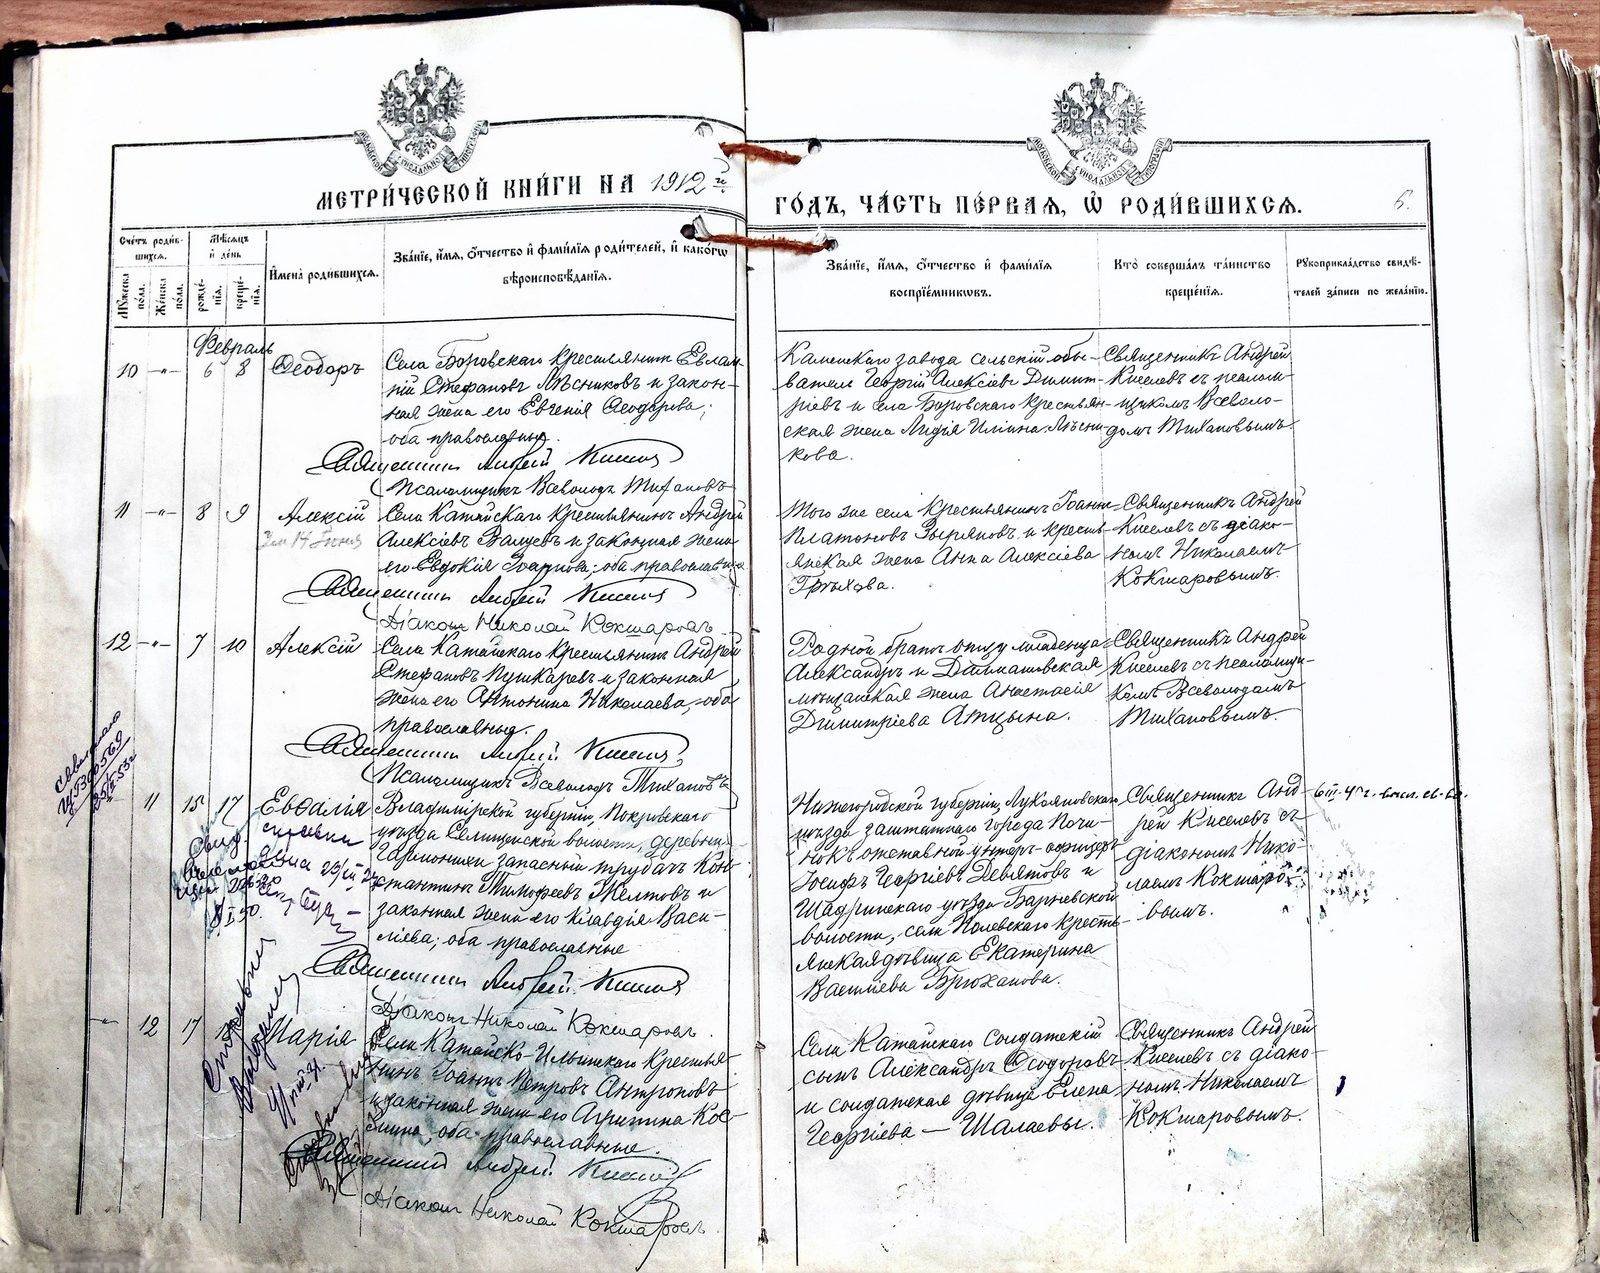 МЕТРИ́ЧЕСКОЙ КНИ́ГИ НА 1912 й
ГО́ДЪ, ЧА́СТЬ ПЕ́РВАЯ, Ѡ҆ РОДИ́ВШИХСЯ.
Сче́тъ роди́в-
шихся.
Мѣ́сяцъ
и҆ де́нь
И҆мена̀ роди́вшихся.
Зва́нїе, и҆́мя, ѻ҆́тчество и҆ фами́лїя роди́телей, и҆ како́гѡ
вѣроисповѣ́данїя.
Мꙋ́жеска
по́ла.
Же́нска
по́ла.
рожде́-
нїя.
креще́-
нїя.
Зва́нїе, и҆́мя, ѻ҆́тчество и҆ фами́лїя
воспрїе́мникѡвъ.
Кто̀ соверша́лъ та́инство
креще́нїя.
Рꙋкоприкла́дство свидѣ́-
телей за́писи по жела́нїю.
Февраль
10 -"- 6 8 Ѳеодоръ
Села Боровскаго крестьянинъ Евлам-
пій Стефановъ Лѣсниковъ и закон-
ная жена его Евгенія Ѳеодорова;
оба православные.
Священникъ Андрей Киселевъ
Псаломщикъ Всеволодъ Тихановъ
Каменскаго завода сельскій обы-
ватель Георгій Алексіевъ Димит-
ріевъ и села Боровскаго крестьян-
ская жена Лидія Ильина Лѣсни-
кова.
Священникъ Андрей
Киселевъ съ псалом-
щикомъ Всеволо-
домъ Тихановымъ.
11 -"- 8 9 Алексій
Села Катайскаго крестьянинъ Андрей
Алексіевъ Валуевъ и законная жена
его Евдокія Іоаннова; оба православные
Священникъ Андрей Киселевъ
Діаконъ Николай Кокшаровъ
Того же села крестьянинъ Іоаннъ
Платоновъ Зыряновъ и кресть-
янская жена Анна Алексіева
Грѣхова.
Священникъ Андрей
Киселевъ съ діако-
номъ Николаемъ
Кокшаровымъ.
12 -"- 7 10 Алексій
Села Катайскаго крестьянинъ Андрей
Стефановъ Пушкаревъ и законная
жена его Антонина Николаева, оба
православные.
Священникъ Андрей Киселевъ
Псаломщикъ Всеволодъ Тихановъ
Родной братъ отцу младенца
Александръ и Далматовская
мѣщанская жена Анастасія
Димитріева Апцына.
Священникъ Андрей
Киселевъ съ псаломщи-
комъ Всеволодомъ
Тихановымъ.
11 15 17 Евѳалія
Владимірской губерніи, Покровскаго
уѣзда Селищенской волости, деревни
запасный трубачъ Кон-
стантинъ Тимофеевъ Желтовъ и
законная жена его Клавдія Васи-
ліева; оба православные
Священникъ Андрей Киселевъ
Діаконъ Николай Кокшаровъ.
Нижегородской губерніи, Лукояновскаго
уѣзда заштатнаго города Почи-
нокъ отставной унтеръ-офицеръ
Іосифъ Георгіевъ Девятовъ и
Шадринскаго уѣзда Барневской
волости, села Полевскаго кресть-
янская дѣвица Екатерина
Василіева Брюханова.
Священникъ Анд-
рей Киселевъ съ
діакономъ Нико-
лаемъ Кокшаро-
вымъ.
-"- 12 17 Марія
Села Катайско-Ильинскаго крестья-
нинъ Іоаннъ Петровъ Антроповъ
и законная жена его Агрипина Кос-
мина, оба православные.
Священникъ Андрей Киселевъ
Діаконъ Николай Кокшаровъ.
Села Катайскаго солдатскій
сынъ Александръ Ѳеодоровъ
и солдатская дѣвица Елена
Георгіева — Шалаевы.
Священникъ Андрей
Киселевъ съ діако-
номъ Николаемъ
Кокшаровымъ.